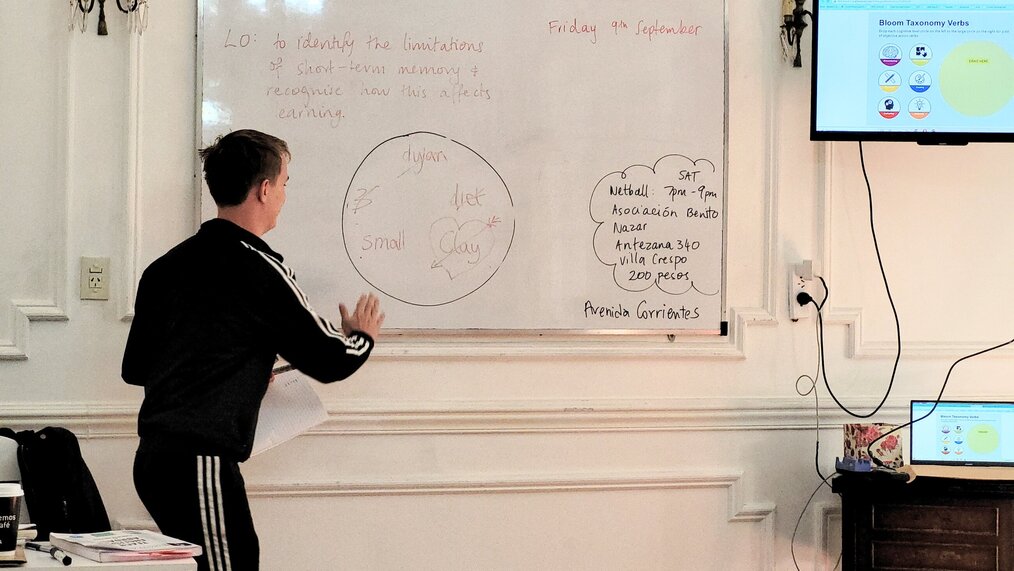 LO: to identify the limitations
of short-term memory &
recognise how this affects
earning.
Friday 9th September
dylan
diet
small
Clay
SAT
Netball: 7pm-9pm
Asociación Benito
Nazar
Antezana 340
Villa Crespo
200 pesos
Avenida Corrientes
Bloom Taxonomy Verbs
DRAG HERE
Bloom Taxonomy Verbs